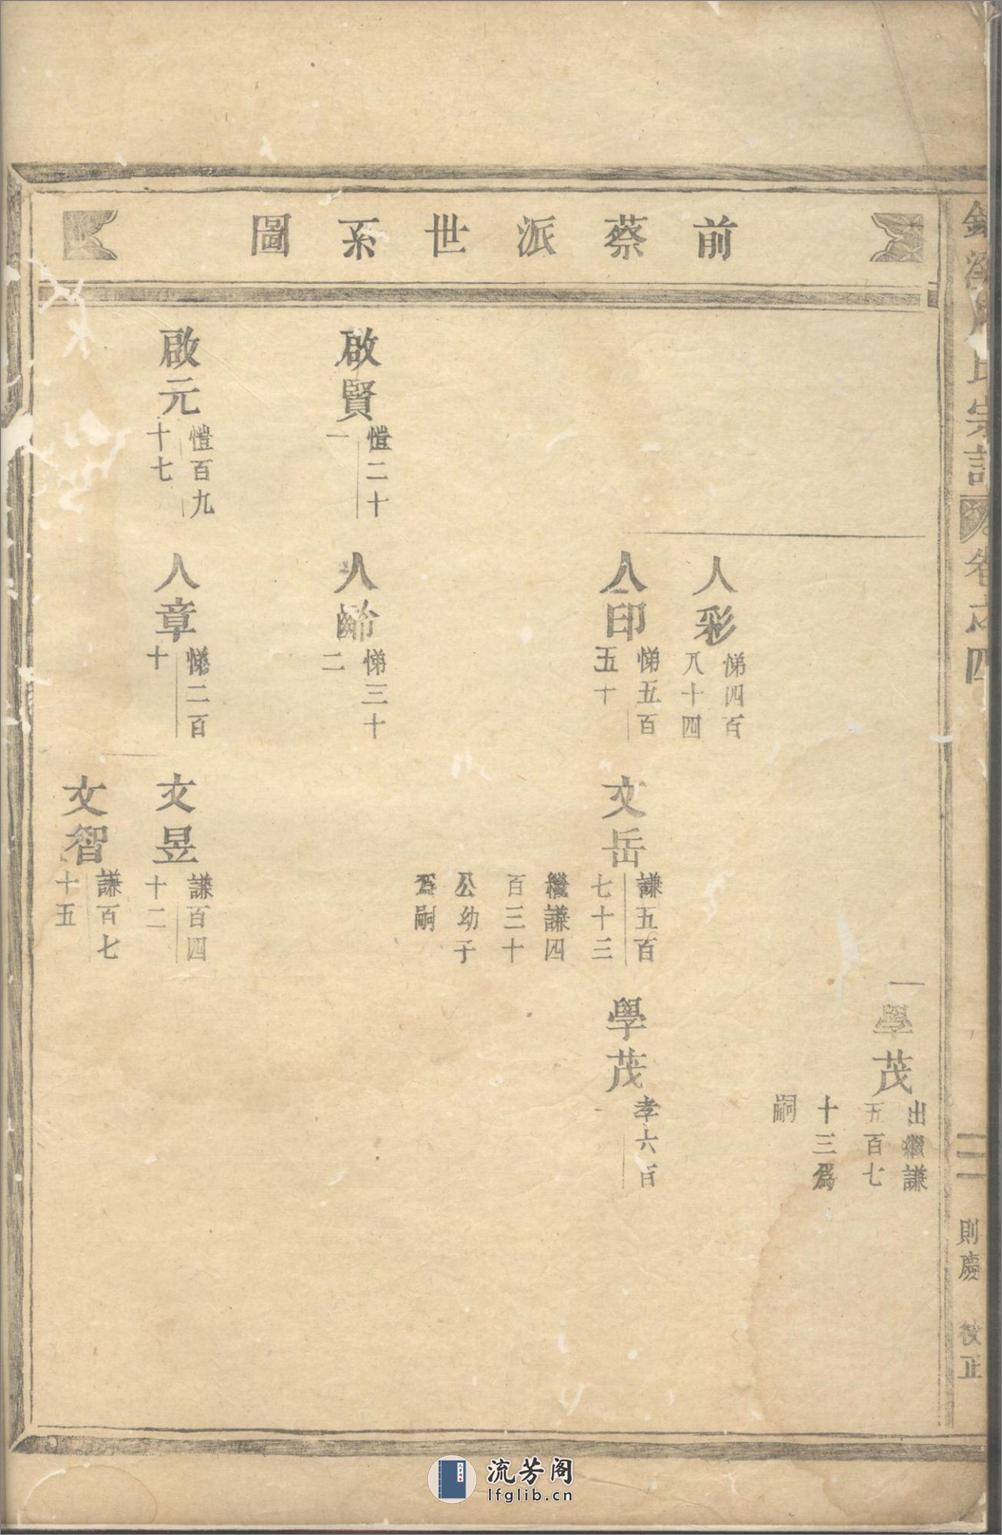 前蔡派世系圖
氏宗譜
卷之四
則慶 校正
學茂
出繼謙
五百七
十三爲
嗣
人彩
悌四百
八十四
人印
悌五百
五十
文岳
謙五百
七十三
繼謙四
百三十
公幼子
爲嗣
學茂
孝六百
啟賢
愷二十
一
人齡
悌三十
二
啟元
愷百九
十七
人章
悌二百
十
文昱
謙百四
十二
文智
謙百七
十五
流芳阁
lfglib.cn